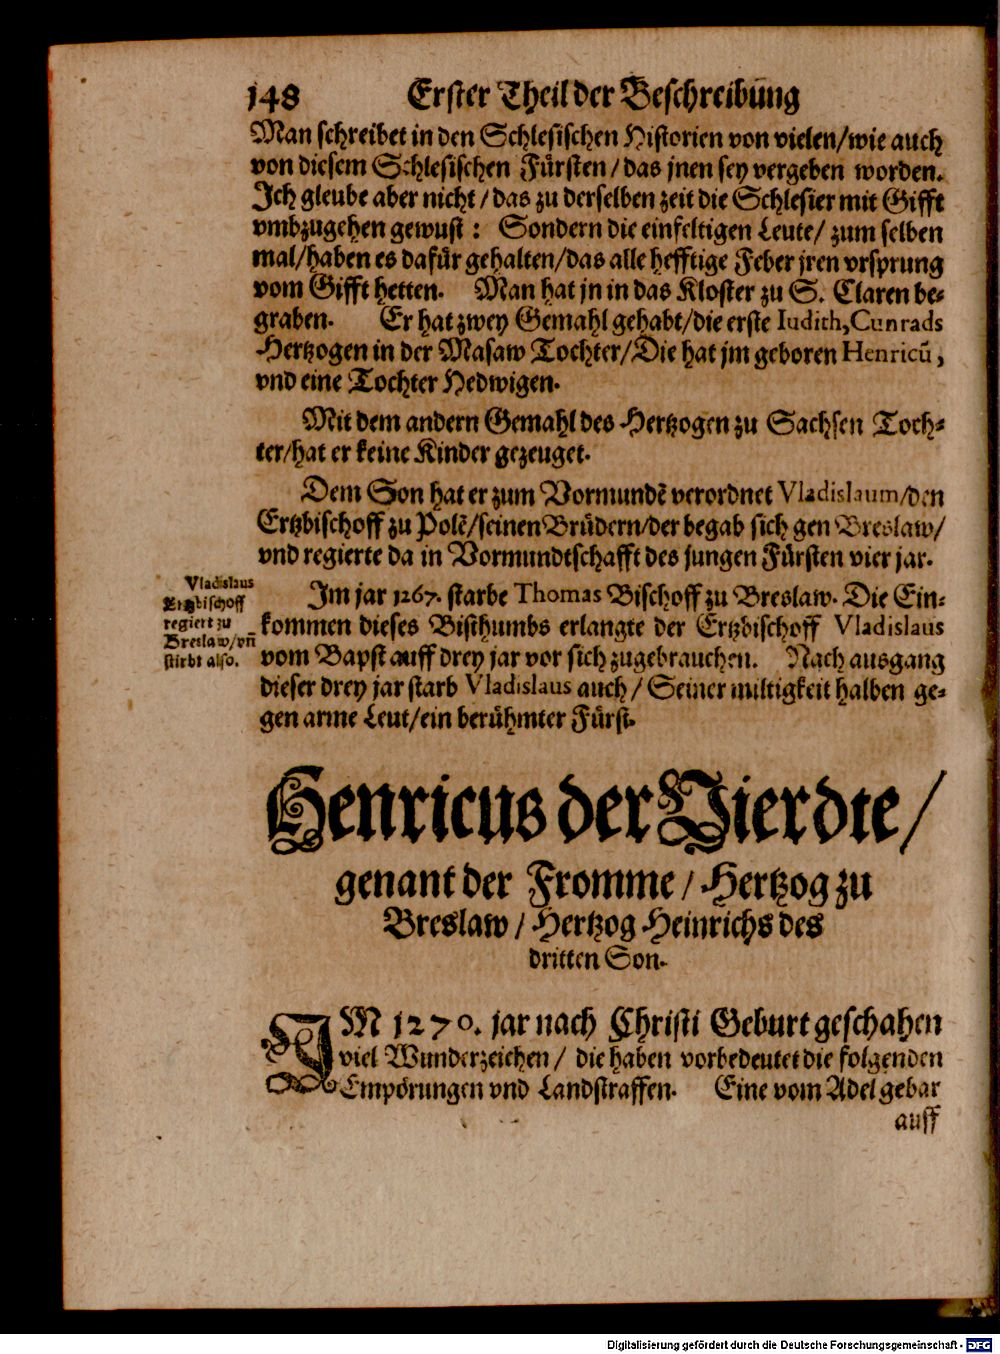 148 Erster Theil der Beschreibung
Man schreibet in den Schlesischen Historien von vielen/wie auch
von diesem Schlesischen Fürsten / das jnen sey vergeben worden.
Ich gleube aber nicht / das zu derselben zeit die Schlesier mit Gifft
vmbzugehen gewust : Sondern die einfeltigen Leute/ zum selben
mal/haben es dafür gehalten/das alle hefftige Feber jren vrsprung
vom Gifft hetten. Man hat jn in das Kloster zu S. Claren be-
graben. Er hat zwey Gemahl gehabt/die erste Iudith, Cunrads
Hertzogen in der Masaw Tochter/Die hat jm geboren Henricũ,
vnd eine Tochter Hedwigen.
Mit dem andern Gemahl des Hertzogen zu Sachsen Toch-
ter/hat er keine Kinder gezeuget.
Dem Son hat er zum Vormundẽ verordnet Vladislaum/den
Ertzbischoff zu Polẽ/seinen Brüdern/der begab sich gen Breslaw/
vnd regierte da in Vormundtschafft des jungen Fürsten vier jar.
Vladislaus
Ertzbischoff
regiert zu
Breslaw/vñ
stirbt also.
Im jar 1267. starbe Thomas Bischoff zu Breslaw. Die Ein-
kommen dieses Bisthumbs erlangte der Ertzbischoff Vladislaus
vom Bapst auff drey jar vor sich zugebrauchen. Nach ausgang
dieser drey jar starb Vladislaus auch / Seiner miltigkeit halben ge-
gen arme Leut/ein berühmter Fürst.
Henricus der Vierdte /
genant der Fromme / Hertzog zu
Breslaw / Hertzog Heinrichs des
dritten Son.
IM 1270. jar nach Christi Geburt geschahen
viel Wunderzeichen / die haben vorbedeutet die folgenden
Empörungen vnd Landstraffen. Eine vom Adel gebar
auff
Digitalisierung gefördert durch die Deutsche Forschungsgemeinschaft - DFG